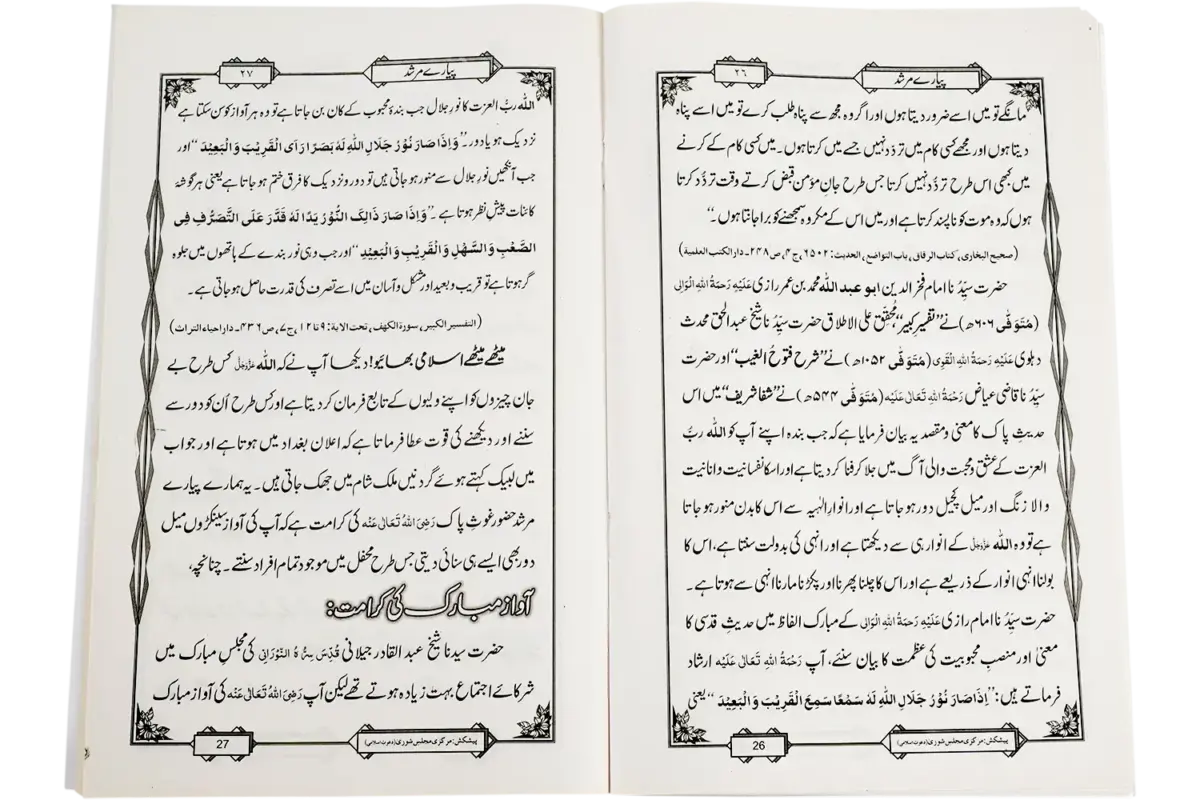 پیارے مرشد
۲۶
مانگے تو میں اسے ضرور دیتا ہوں اور اگر وہ مجھ سے پناہ طلب کرے تو میں اسے پناہ
دیتا ہوں اور مجھے کسی کام میں تردّد نہیں جسے میں کرتا ہوں۔ میں کسی کام کے کرنے
میں کبھی اس طرح تردُّد نہیں کرتا جس طرح جانِ مؤمن قبض کرتے وقت تردُّد کرتا
ہوں کہ وہ موت کو ناپسند کرتا ہے اور میں اس کے مکروہ سمجھنے کو برا جانتا ہوں۔‘‘
(صحیح البخاری، کتاب الرقاق، باب التواضع، الحدیث: ۶۵۰۲، ج۴، ص۲۴۸۔ دار الکتب العلمیة)
حضرت سیِّدُنا امام فخر الدین ابو عبد اللہ محمد بن عمر رازی عَلَیْہِ رَحْمَۃُ اللہِ الْوَالِی
(مُتَوَفّٰی ۶۰۶ھ) نے ’’تفسیرِ کبیر‘‘، مُحقِّق علی الاطلاق حضرت سیِّدُنا شیخ عبد الحق محدث
دہلوی عَلَیْہِ رَحْمَۃُ اللہِ الْقَوِی (مُتَوَفّٰی ۱۰۵۲ھ) نے ’’شرح فتوحُ الغیب‘‘ اور حضرت
سیِّدُنا قاضی عیاض رَحْمَۃُ اللہِ تَعَالٰی عَلَیْہ (مُتَوَفّٰی ۵۴۴ھ) نے ’’شفا شریف‘‘ میں اس
حدیثِ پاک کا معنٰی و مقصد یہ بیان فرمایا ہے کہ جب بندہ اپنے آپ کو اللہ ربُّ
العزت کے عشق و محبت والی آگ میں جلا کر فنا کر دیتا ہے اور اسکا نفسانیت و انانیت
والا زنگ اور میل کچیل دور ہو جاتا ہے اور انوارِ الٰہیہ سے اس کا بدن منور ہو جاتا
ہے تو وہ اللہ عَزَّوَجَلَّ کے انوار ہی سے دیکھتا ہے اور انہی کی بدولت سنتا ہے، اس کا
بولنا انہی انوار کے ذریعے ہے اور اس کا چلنا پھرنا اور پکڑنا مارنا انہی سے ہوتا ہے۔
حضرت سیِّدُنا امام رازی عَلَیْہِ رَحْمَۃُ اللہِ الْوَالِی کے مبارک الفاظ میں حدیثِ قدسی کا
معنیٰ اور منصبِ محبوبیت کی عظمت کا بیان سنئے، آپ رَحْمَۃُ اللہِ تَعَالٰی عَلَیْہ ارشاد
فرماتے ہیں: ’’اِذَا صَارَ نُوْرُ جَلَالِ اللہِ لَہٗ سَمْعًا سَمِعَ الْقَرِیْبَ وَ الْبَعِیْدَ ‘‘ یعنی
پیشکش: مرکزی مجلس شوریٰ (دعوتِ اسلامی)
26
پیارے مرشد
۲۷
اللہ ربُّ العزت کا نورِ جلال جب بندۂ محبوب کے کان بن جاتا ہے تو وہ ہر آواز کو سن سکتا ہے
نزدیک ہو یا دور۔ ’’وَ اِذَا صَارَ نُوْرُ جَلَالِ اللہِ لَہٗ بَصَرًا رَاَی الْقَرِیْبَ وَ الْبَعِیْدَ ‘‘ اور
جب آنکھیں نورِ جلال سے منور ہو جاتی ہیں تو دور و نزدیک کا فرق ختم ہو جاتا ہے یعنی ہر گوشۂ
کائنات پیشِ نظر ہوتا ہے۔ ’’وَ اِذَا صَارَ ذَالِکَ النُّوْرُ یَدًا لَہٗ قَدَرَ عَلَی التَّصَرُّفِ فِی
الصَّعْبِ وَ السَّھْلِ وَ الْقَرِیْبِ وَ الْبَعِیْدِ ‘‘ اور جب وہی نور بندے کے ہاتھوں میں جلوہ
گر ہوتا ہے تو قریب و بعید اور مشکل و آسان میں اسے تصرف کی قدرت حاصل ہو جاتی ہے۔
(التفسیر الکبیر، سورة الکھف، تحت الایة: ۹ تا ۱۲، ج۷، ص۴۳۶۔ دار احیاء التراث)
میٹھے میٹھے اسلامی بھائیو! دیکھا آپ نے کہ اللہ عَزَّوَجَلَّ کس طرح بے
جان چیزوں کو اپنے ولیوں کے تابعِ فرمان کر دیتا ہے اور کس طرح اُن کو دور سے
سننے اور دیکھنے کی قوت عطا فرماتا ہے کہ اعلان بغداد میں ہوتا ہے اور جواب
میں لبیک کہتے ہوئے گردنیں ملک شام میں جھک جاتی ہیں۔ یہ ہمارے پیارے
مرشد حضور غوثِ پاک رَضِیَ اللہُ تَعَالٰی عَنْہ کی کرامت ہے کہ آپ کی آواز سینکڑوں میل
دور بھی ایسے ہی سنائی دیتی جس طرح محفل میں موجود تمام افراد سنتے۔ چنانچہ،
آواز مبارک کی کرامت:
حضرت سیدنا شیخ عبد القادر جیلانی قُدِّسَ سِرُّہُ النُّوْرَانِی کی مجلسِ مبارک میں
شرکائے اجتماع بہت زیادہ ہوتے تھے لیکن آپ رَضِیَ اللہُ تَعَالٰی عَنْہ کی آواز مبارک
پیشکش: مرکزی مجلس شوریٰ (دعوتِ اسلامی)
27